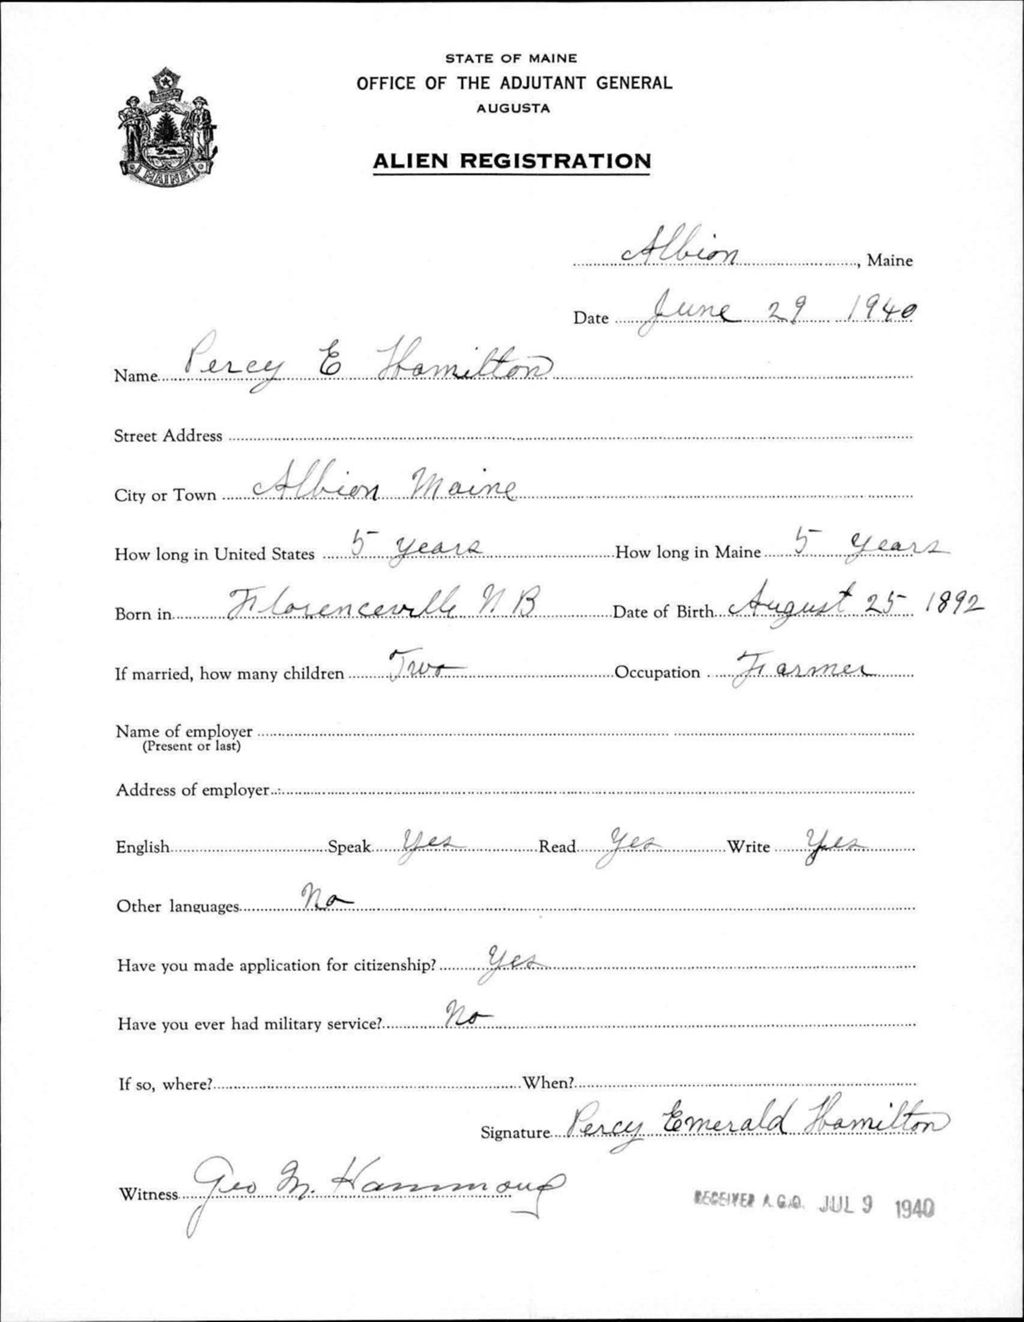 STATE OF MAINE
OFFICE OF THE ADJUTANT GENERAL
AUGUSTA
ALIEN REGISTRATION
MAINE
Albion, Maine
Date June 29 1940
Name Percy E Hamilton
Street Address
City or Town Albion Maine
How long in United States 5 years How long in Maine 5 years
Born in Florenceville N B Date of Birth August 25 1892
If married, how many children Two Occupation Farmer
Name of employer
(Present or last)
Address of employer
English Speak Yes Read Yes Write Yes
Other languages No
Have you made application for citizenship? Yes
Have you ever had military service? No
If so, where? When?
Signature Percy Emerald Hamilton
Witness Geo M. Hammond
RECEIVED A.G.O. JUL 9 1940